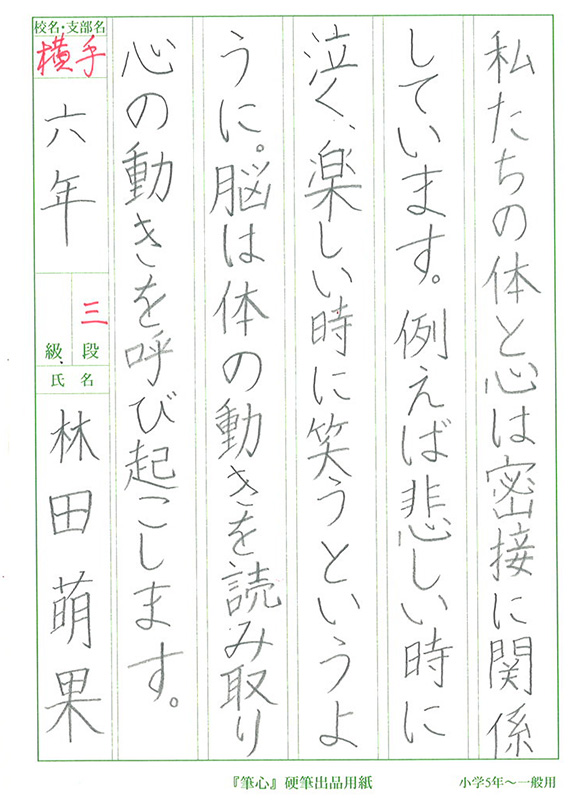 私たちの体と心は密接に関係
しています。例えば悲しい時に
泣く、楽しい時に笑うというよ
うに。脳は体の動きを読み取り
心の動きを呼び起こします。
校名・支部名
横手
六年
三
段
級
氏名
林田萌果
『筆心』硬筆出品用紙
小学5年〜一般用